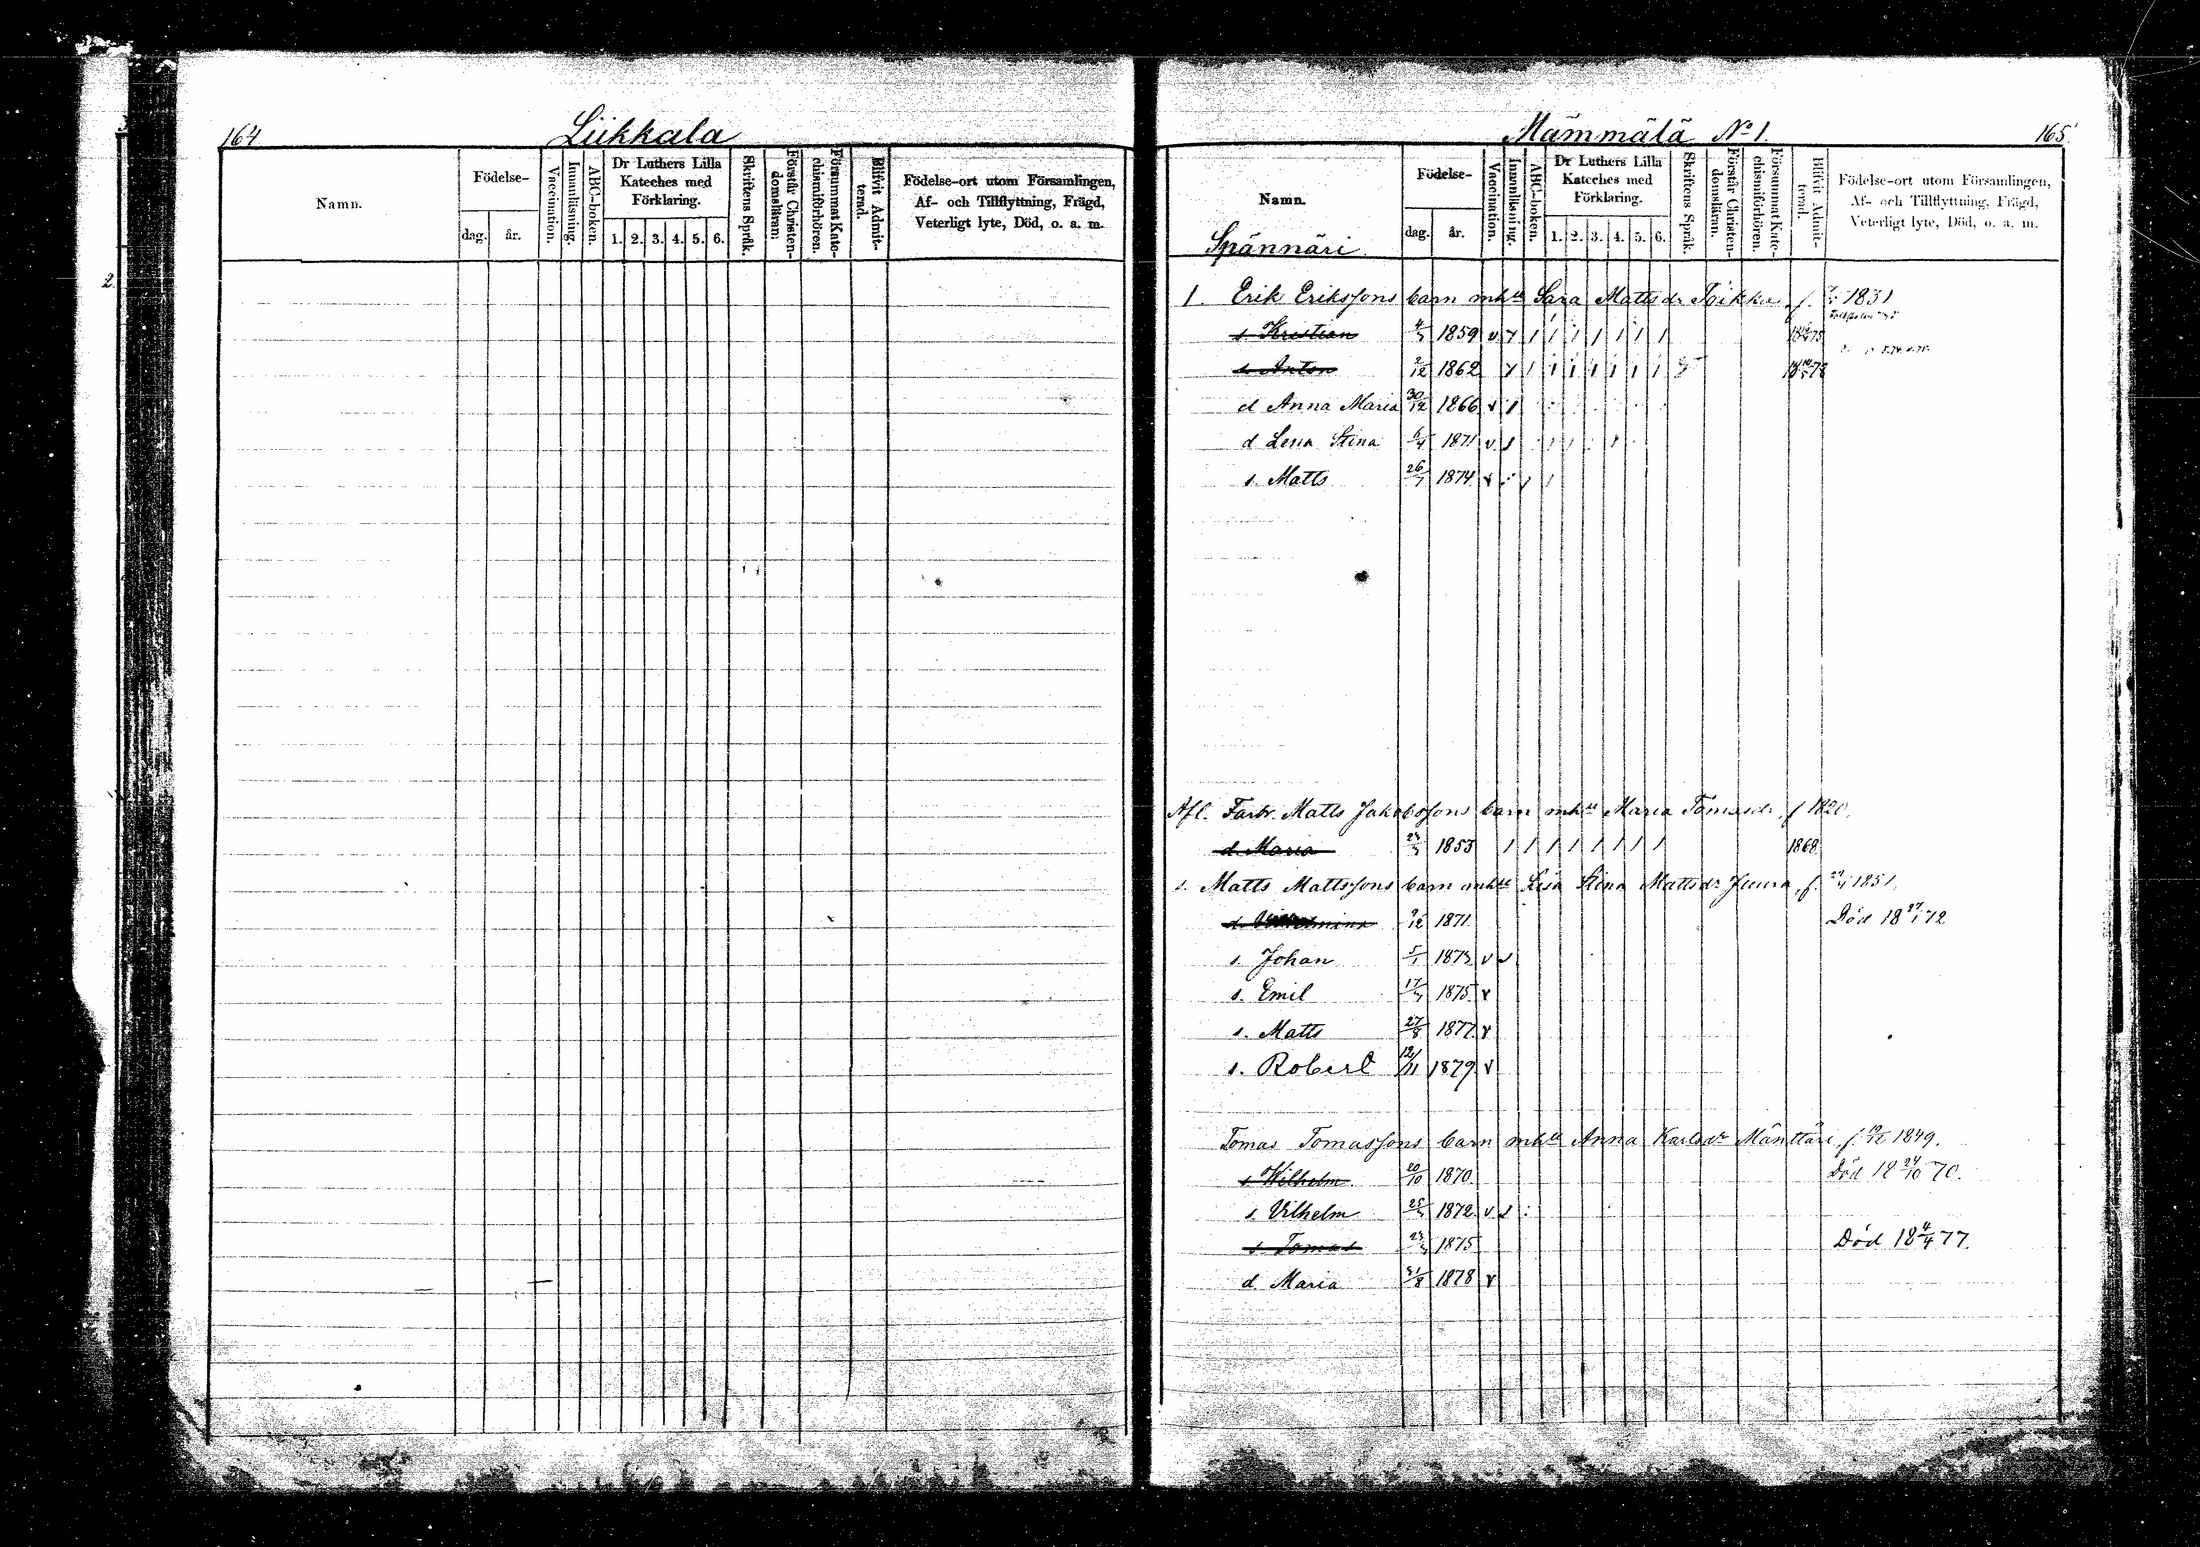 164
Liikkala
Namn.
Födelse-
dag. år.
Vaccination.
Innanläsning.
ABC-boken.
Dr Luthers Lilla
Kateches med
Förklaring.
1. 2. 3. 4. 5. 6.
Skriftens Språk.
Förstår Christen-
domsläran.
Försummat Kate-
chismiförhören.
Blifvit Admit-
terad.
Födelse-ort utom Församlingen,
Af- och Tillflyttning, Frägd,
Veterligt lyte, Död, o. a. m.
2
Mämmälä No 1.
165
Namn.
Spännäri
Födelse-
dag. år.
Vaccination.
Innanläsning.
ABC-boken.
Dr Luthers Lilla
Kateches med
Förklaring.
1. 2. 3. 4. 5. 6.
Skriftens Språk.
Förstår Christen-
domsläran.
Försummat Kate-
chismiförhören.
Blifvit Admit-
terad.
Födelse-ort utom Församlingen,
Af- och Tillflyttning, Frägd,
Veterligt lyte, Död, o. a. m.
1. Erik Erikssons barn mhu Sara Mattsdr Toikka, f. 1831
s. Kristian 1859 v
s. Anton 2/12 1862
d Anna Maria 30/12 1866 v
d Lena Stina 6/4 1871 v
s. Matts 1874 v
Afl. Farbr. Matts Jakobssons barn mhu Maria Tomasdr, f 1820.
d. Maria 1853 1868
s. Matts Mattssons barn mhu Lisa Stina Mattsdr Juura, f. 1851.
d. Vilhelmina 9/12 1871. Död 18 27/1 72
s. Johan 5/1 1873 v
s. Emil 1875 v
s. Matts 27/8 1877 v
s. Robert 12/11 1879 v
Tomas Tomassons barn mhu Anna Karlsdr Mänttäri, f. 1849.
s. Wilhelm 20/10 1870. Död 18 24/10 70.
s. Vilhelm 1872 v
s. Tomas 1875 Död 18 4/4 77.
d. Maria 31/8 1878 v